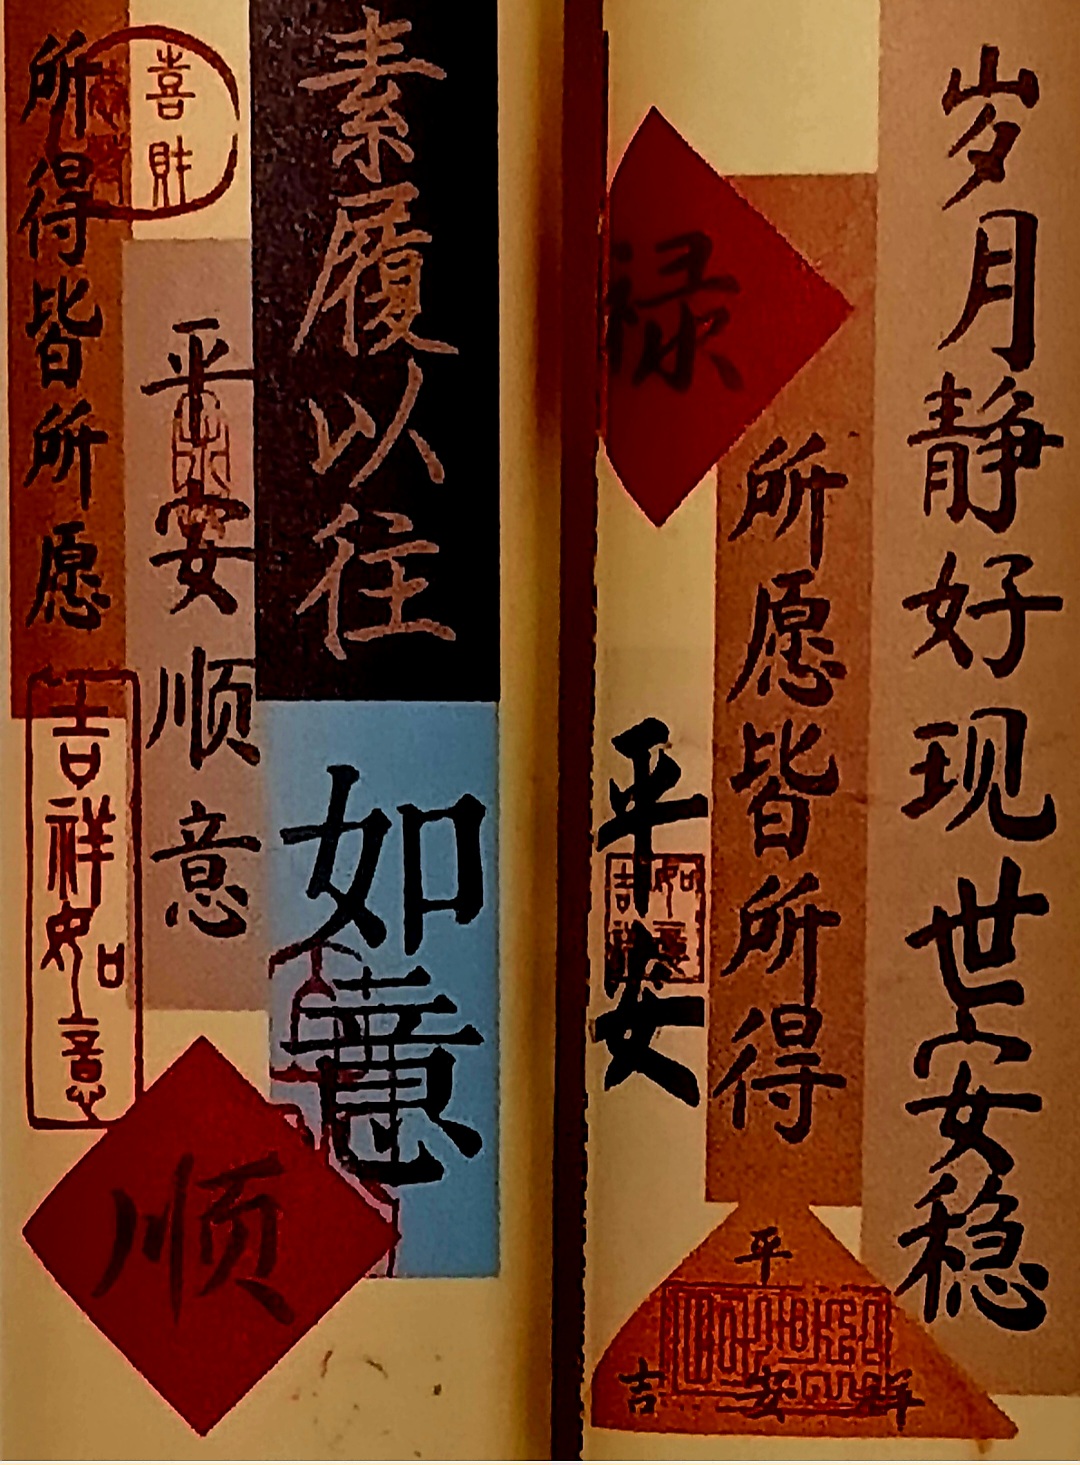 所得皆所愿
喜
财
平安顺意
素履以往
如意
吉祥如意
顺
禄
岁月静好现世安稳
所愿皆所得
平安
吉祥
如意
平
吉安祥